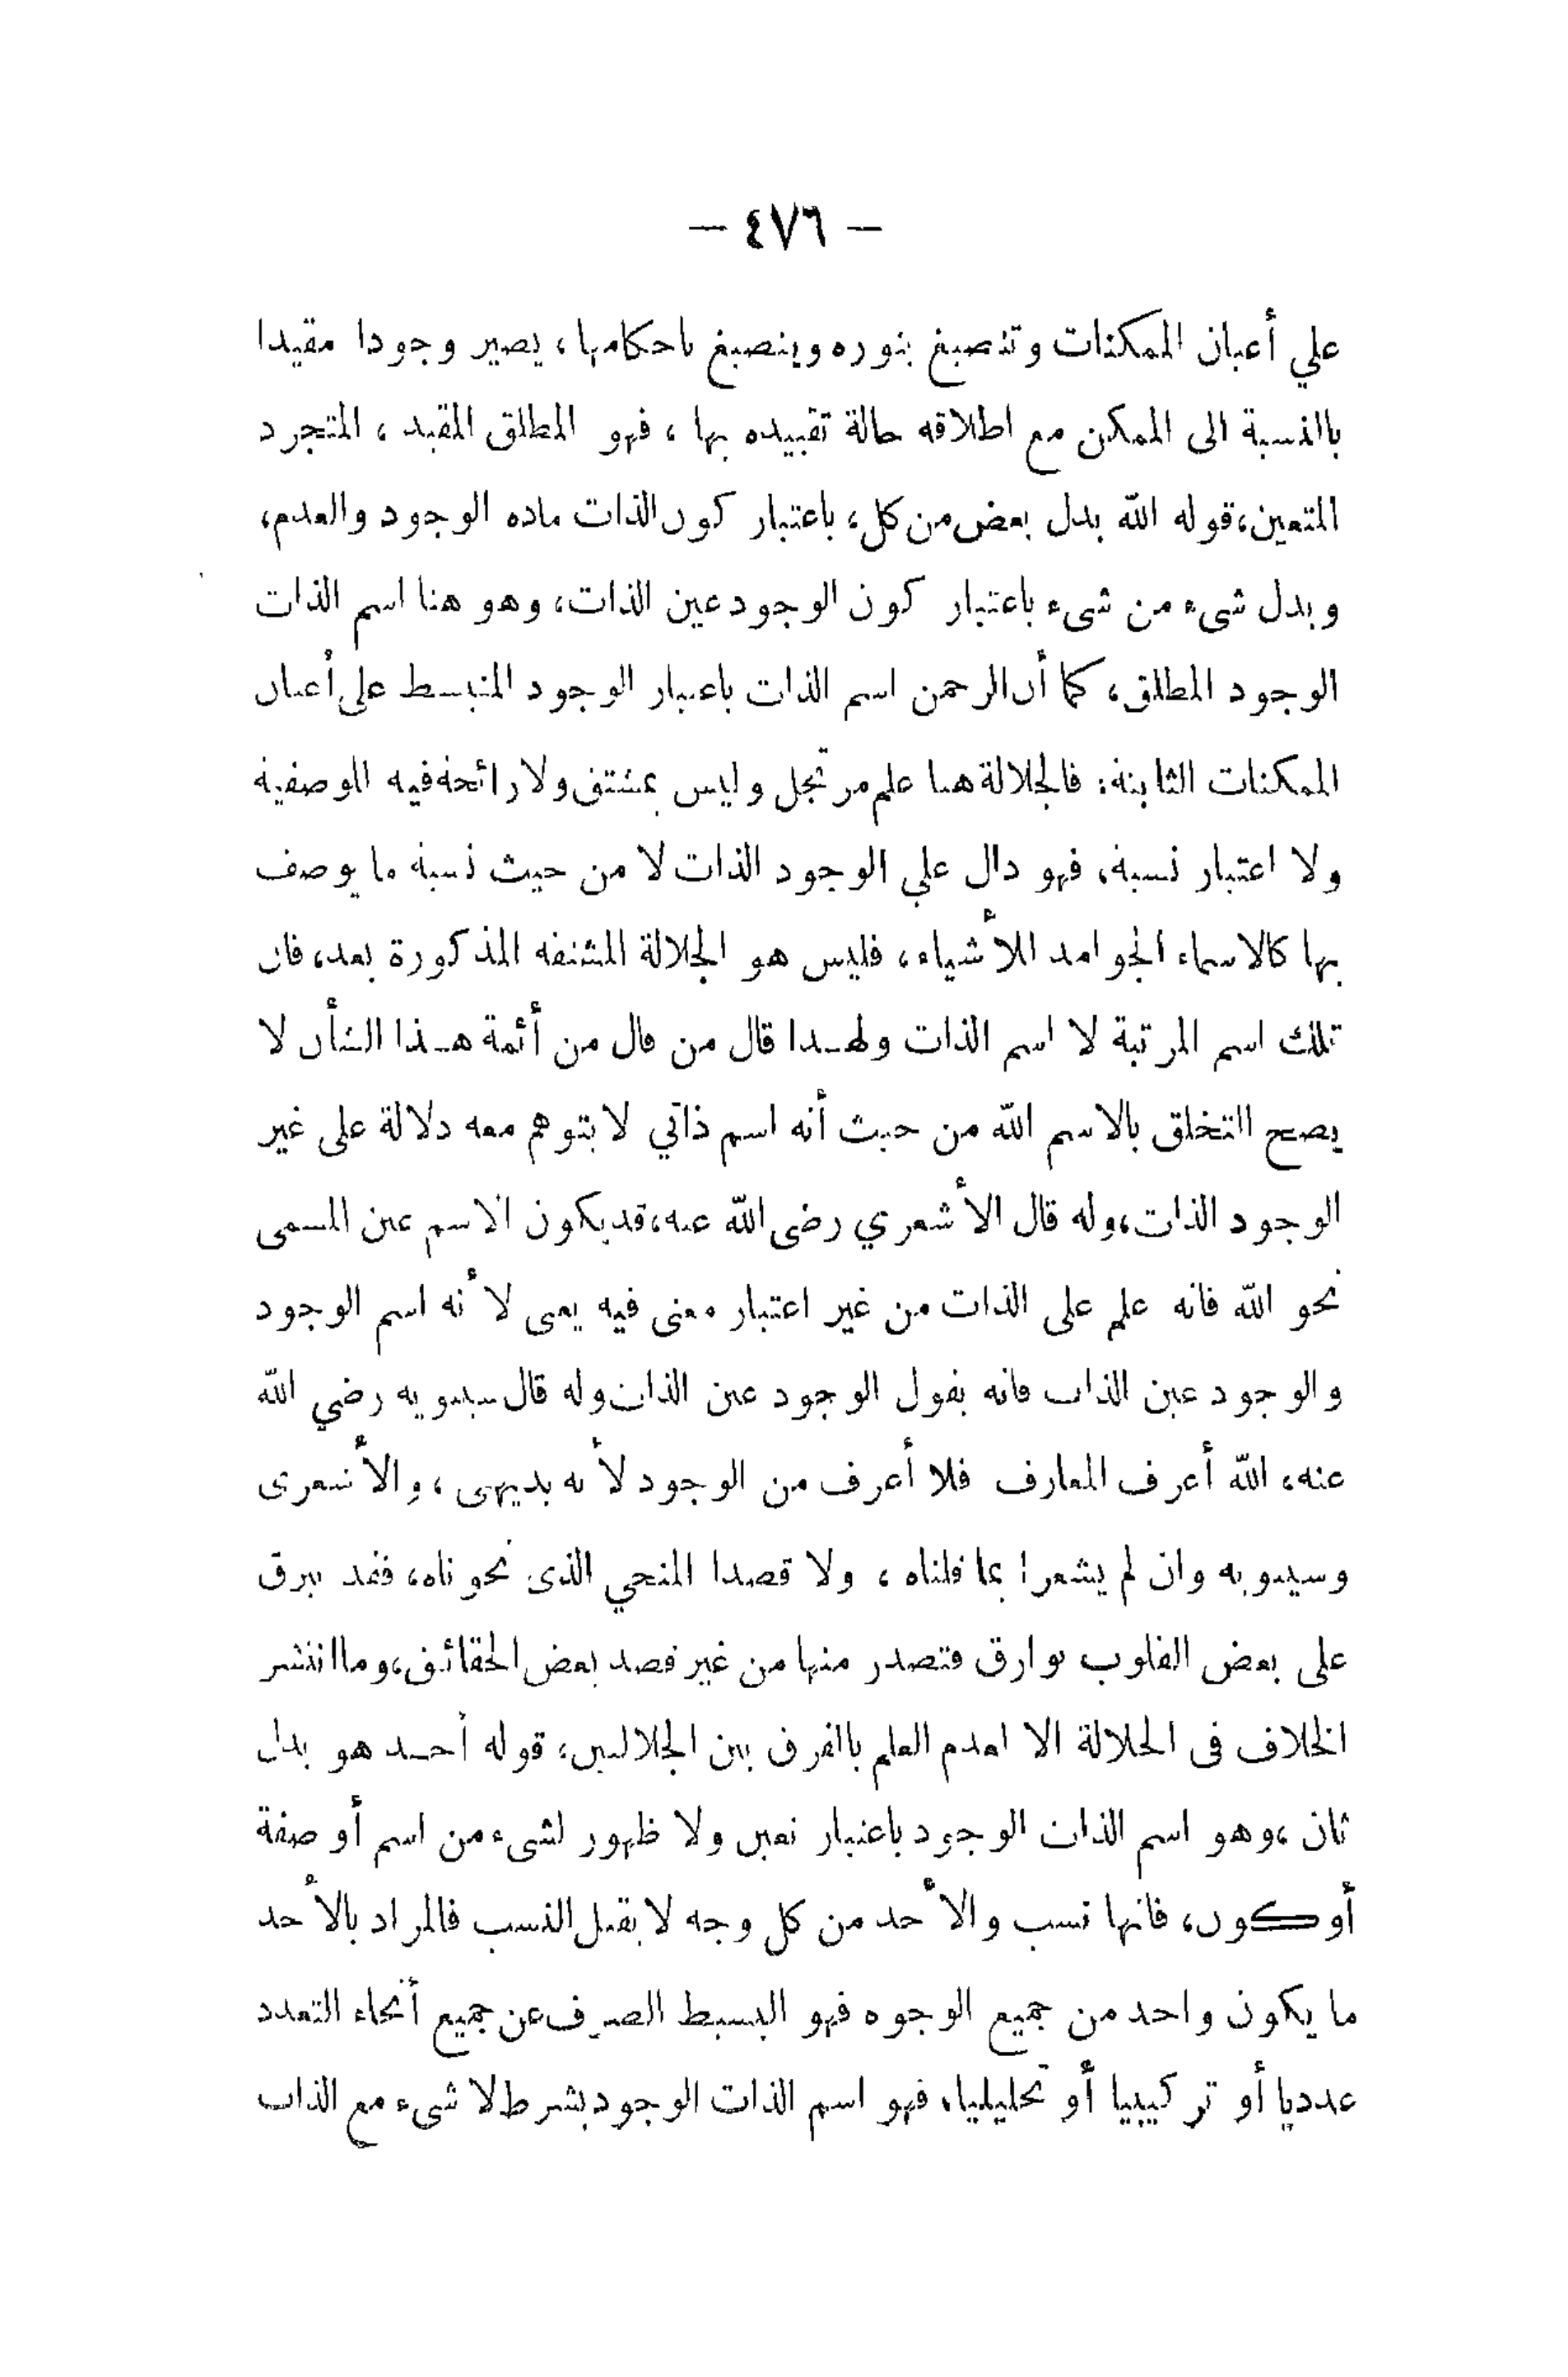 — ٤٧٦ —
علي أعيان الممكنات وتنصبغ بنوره وينصبغ باحكامها، يصير وجودا مقيدا
بالنسبة الى الممكن مع اطلاقه حالة تقييده بها، فهو المطلق المقيد، المتجرد
المتعين، قوله الله بدل بعض من كل، باعتبار كون الذات ماده الوجود والعدم،
وبدل شيء من شيء باعتبار كون الوجود عين الذات، وهو هنا اسم الذات
الوجود المطلق، كما أن الرحمن اسم الذات باعتبار الوجود المنبسط على أعيان
الممكنات الثابتة: فالجلالة هنا علم مرتجل وليس بمشتق ولا رائحة فيه للوصفية
ولا اعتبار نسبة، فهو دال علي الوجود الذات لا من حيث نسبة ما يوصف
بها كالاسماء الجوامد للأشياء، فليس هو الجلالة المشتقه المذكورة بعد، فان
تلك اسم المرتبة لا اسم الذات ولهذا قال من قال من أئمة هذا الشأن لا
يصح التخلق بالاسم الله من حيث أنه اسم ذاتي لا يتوهم معه دلالة على غير
الوجود الذات، وله قال الأشعري رضى الله عنه، قد يكون الاسم عين المسمى
نحو الله فانه علم على الذات من غير اعتبار معنى فيه يعى لأنه اسم الوجود
والوجود عين الذات فانه يقول الوجود عين الذات وله قال سيبويه رضي الله
عنه، الله أعرف المعارف فلا أعرف من الوجود لأنه بديهى، والأشعرى
وسيبويه وان لم يشعرا بما قلناه، ولا قصدا المنحي الذى نحوناه، فقد يبرق
على بعض القلوب بوارق فتصدر منها من غير قصد بعض الحقائق، وما انتشر
الخلاف فى الجلالة الا لعدم العلم بالفرق بين الجلالتين، قوله أحد هو بدل
ثان، وهو اسم الذات الوجود باعتبار تعين ولا ظهور لشىء من اسم أو صفة
أو كون، فانها نسب والأحد من كل وجه لا يقبل النسب فالمراد بالأحد
ما يكون واحد من جميع الوجوه فهو البسيط الصرف عن جميع أنحاء التعدد
عدديا أو تركيبيا أو تحليليا، فهو اسم الذات الوجود بشرط لا شىء مع الذات